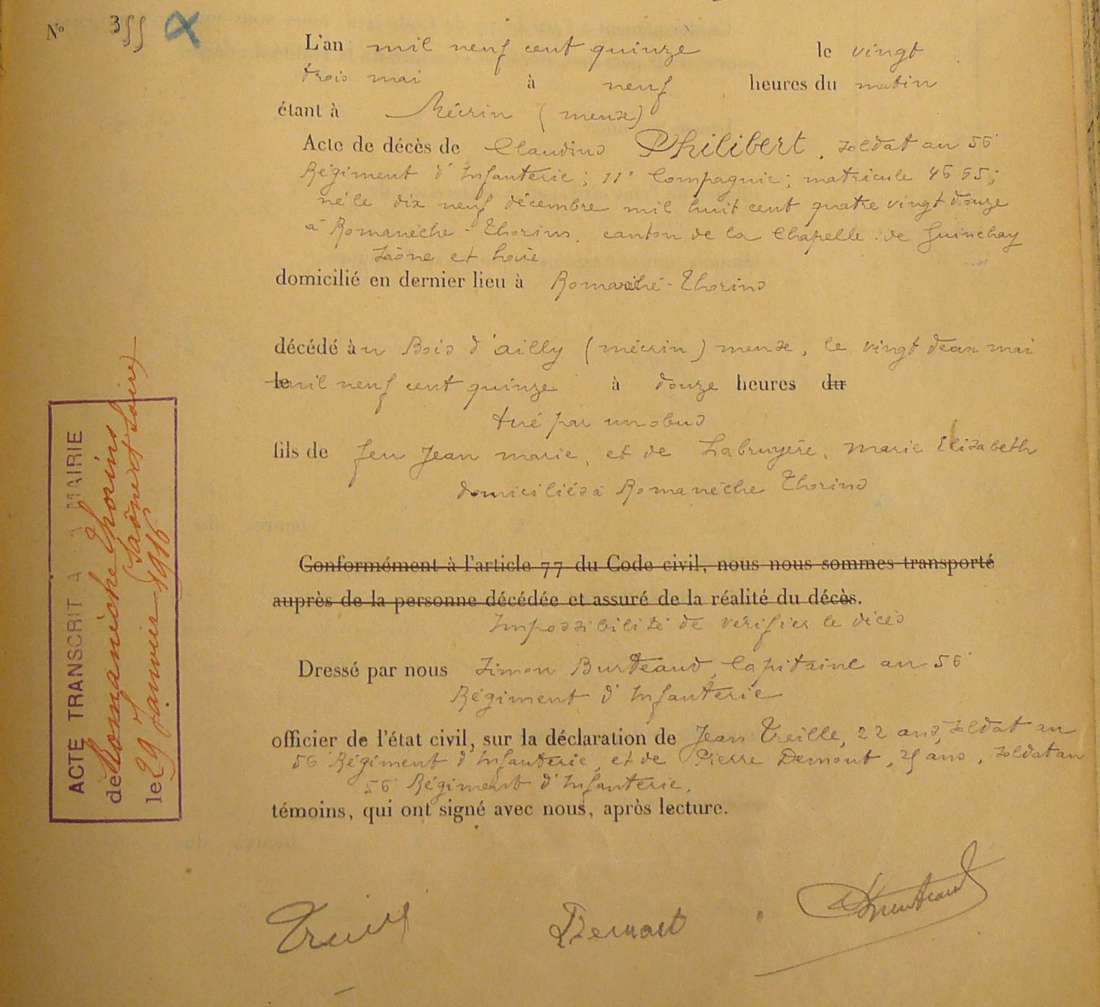 N° 355
L'an mil neuf cent quinze le vingt
trois mai à neuf heures du matin
étant à Mécrin (meuse)
Acte de décès de Claudius Philibert, soldat au 56
Régiment d'Infanterie; 11e Compagnie; matricule 4665;
né le dix neuf décembre mil huit cent quatre vingt douze
à Romanèche-Thorins, canton de la Chapelle de Guinchay
Saône et Loire
domicilié en dernier lieu à Romanèche-Thorins
décédé au Bois d'ailly (mécrin) meuse, le vingt deux mai
le mil neuf cent quinze à douze heures du
tué par un obus
fils de feu Jean marie, et de Labruyère, Marie Elizabeth
domiciliés à Romanèche Thorins
Conformément à l'article 77 du Code civil, nous nous sommes transporté
auprès de la personne décédée et assuré de la réalité du décès.
Impossibilité de vérifier le décès
Dressé par nous Simon Burteaud, Capitaine au 56
Régiment d'Infanterie
officier de l'état civil, sur la déclaration de Jean Treille, 22 ans, soldat au
56 Régiment d'Infanterie, et de Pierre Demont, ans, soldat au
56 Régiment d'Infanterie,
témoins, qui ont signé avec nous, après lecture.
Demont
ACTE TRANSCRIT A LA MAIRIE
de Romanèche Thorins
(Saône et Loire)
le 29 Janvier 1916